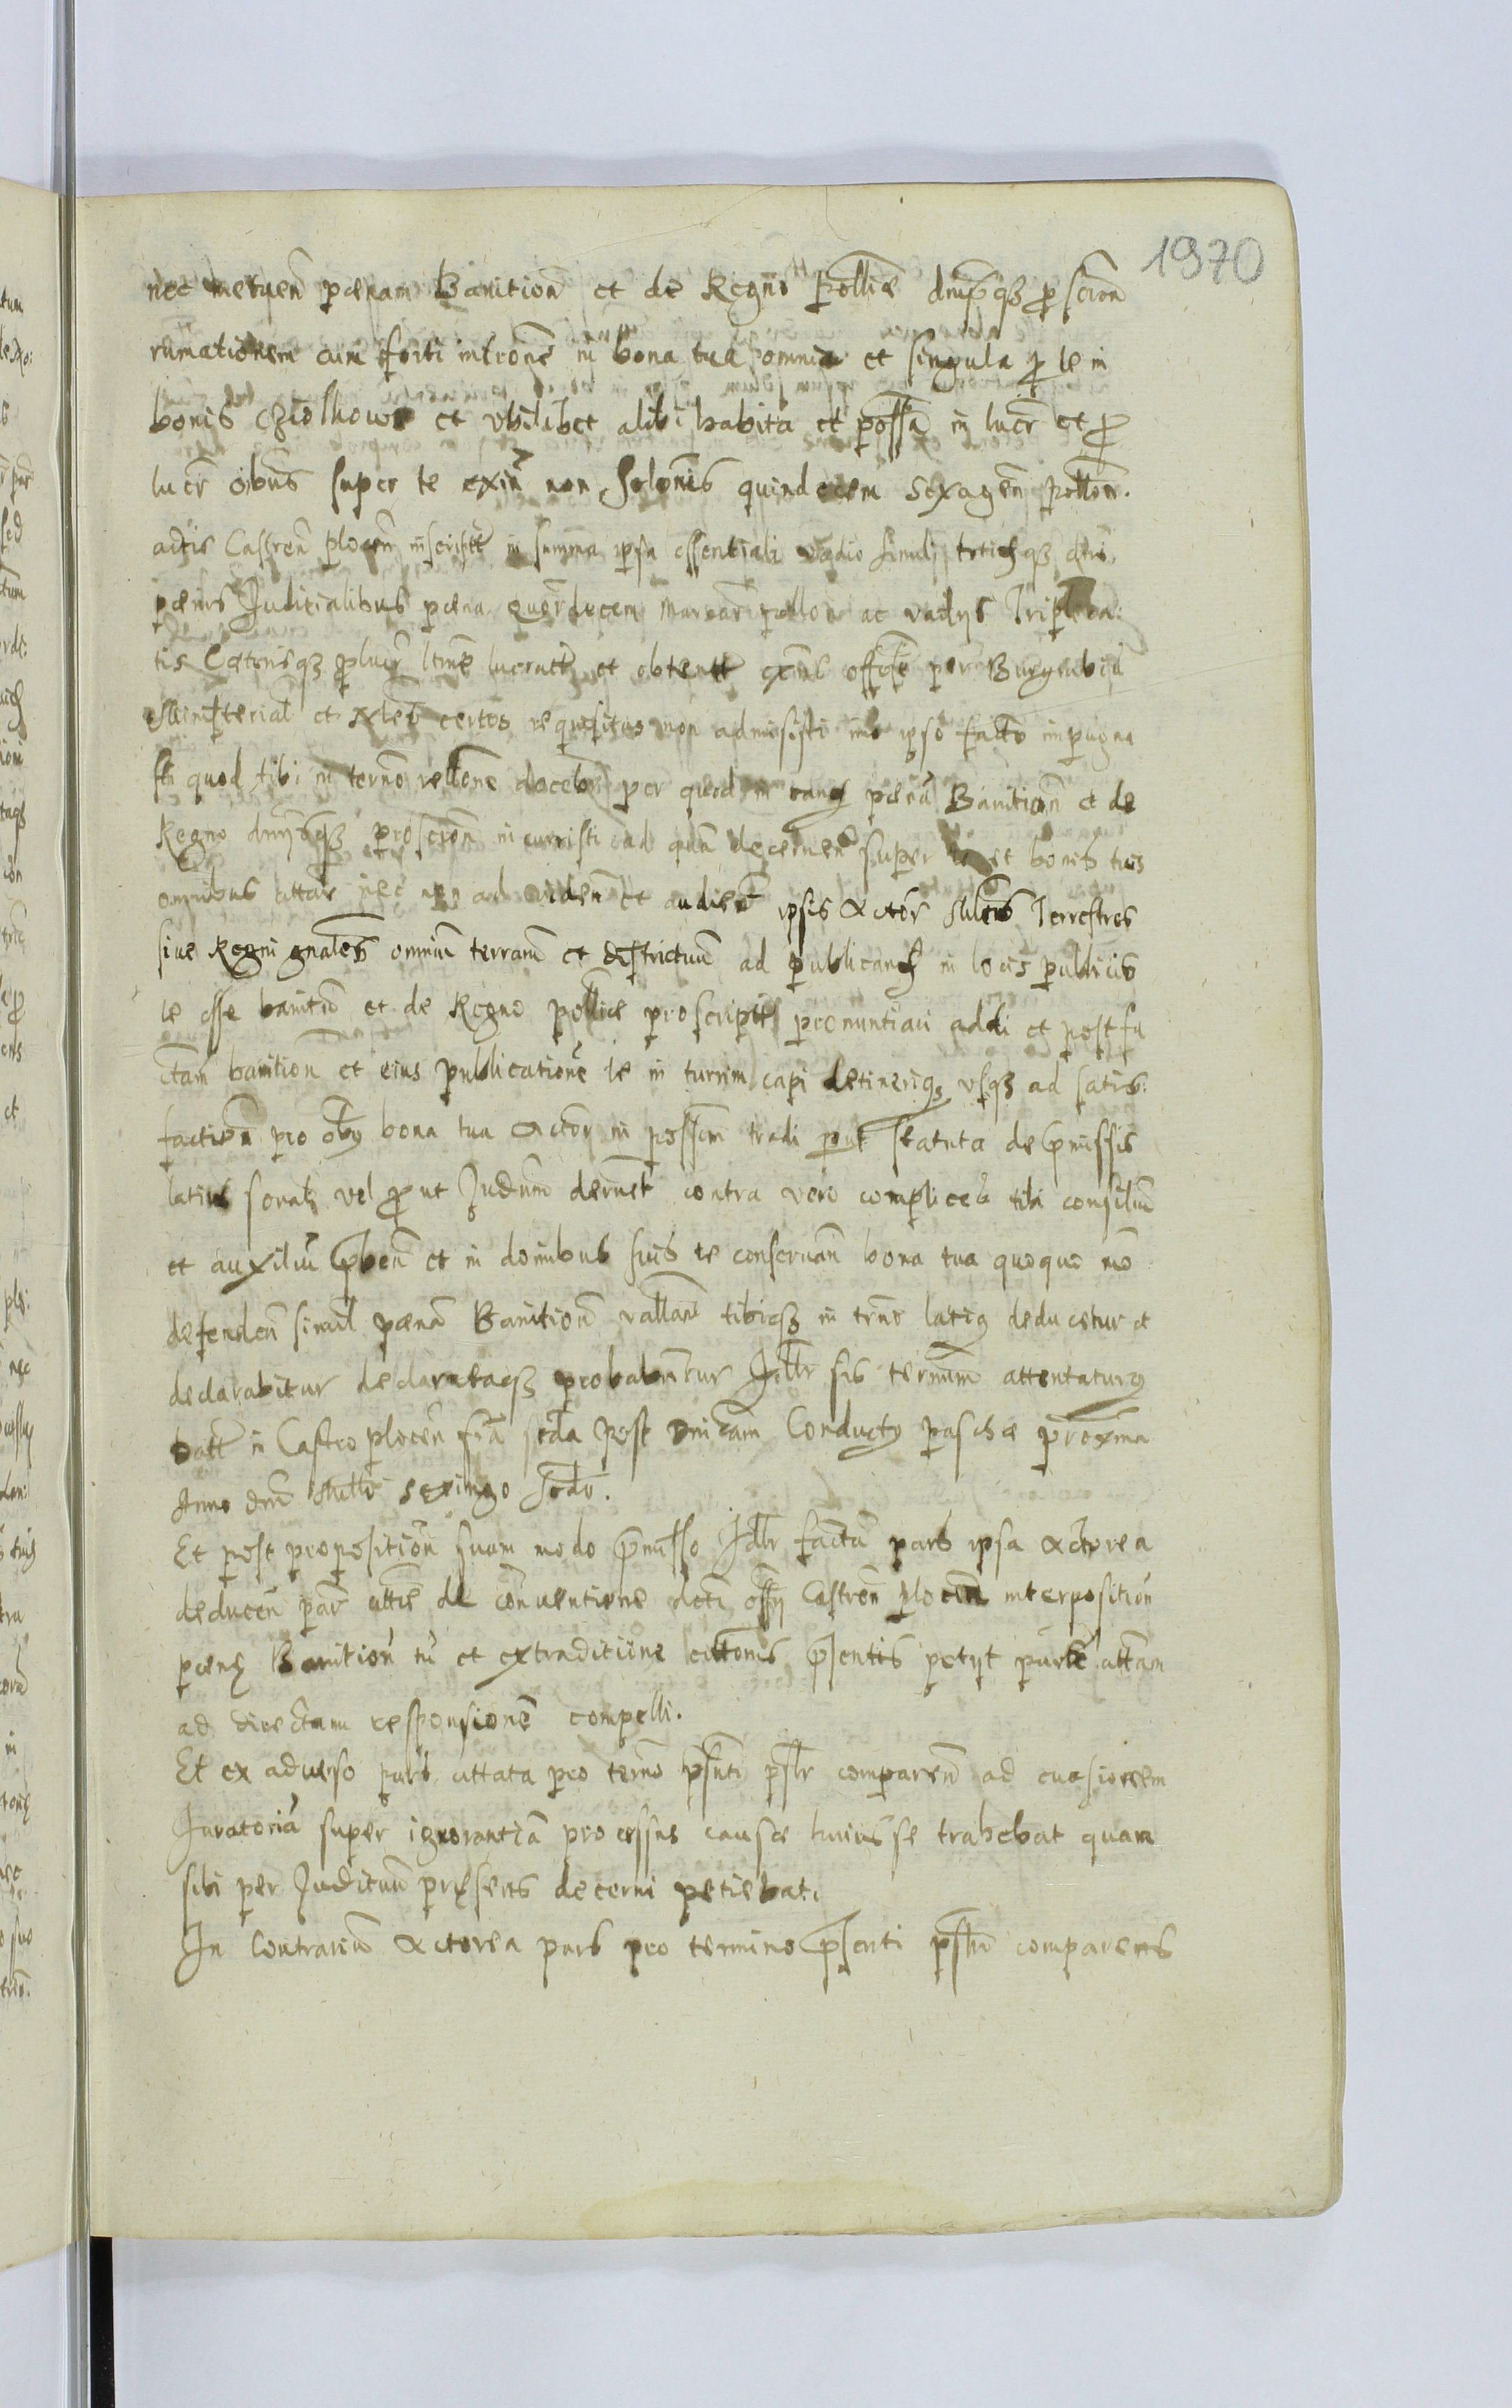 1970
nec metuen pœnam Banition et de Regno Polliæ dnijsqȝ proscron
rumationem cum forti introne in bona tua omnia et singula pro te in
bonis Cziolkowo et vbilibet alibi habita et possa in lucr et pro
lucr oibus super te exin non solonis quindecem sexagen pollon.
actis Castren plocen inscriptt in summa ipsa essentiali vadio simuli
pœnis Juditialibus pœna quordecem marcar pollon ac vadijs Triplica:
tis Cæterisqȝ lucr ltme lucratt et obtentt exnne offcose per Burgrabiu
Ministerial et Nles certos requisitus non admisisti imo ipso facto impugna
sti quod tibi in termo rellone docebr per quod in eand pœna Banition et de
Regno dnijsqȝ proscron incurristi ad quan decernen super te et bonis tuis
omnibus attar nec non ad viden et audien ipsis Actor Mltres Terrestres
siue Regni gnales omnium terrarum et districtuum ad publicand in locis publicis
te esse banitum et de Regno polliæ proscriptt pronuntiari addi et post fa
ctam banition et eius publicatione te in turrim capi detineriqȝ vsqȝ ad satis:
faction pro oibus bona tua Actor in possem tradi prout statuta de præmissis
latius sonatȝ vel prout Judum dernet contra vero complices tibi consilium
et auxiliu præben et in domibus suis te conseruan bona tua quoquo mo
defenden simul pœna Banition vallane tibiqȝ in trno latius deducetur et
declarabitur declarataqȝ probabuntur Idlr sis terminum attentaturus
Datt in Castro plocen fria scda post Dnicam Conductus paschæ proxima
Anno dni Millo sexingo scdo.
Et post proposition suam modo præmisso Idlr facta pars ipsa Actorea
deducen par atte de conuentione dcti offij Castren plocen interposition
pœnæ Banition tu et extraditione cittonis præsentis petijt parte attam
ad directam responsionem compelli.
Et ex aduerso pars attata pro termo psnti pslr comparen ad euasionem
Juratoria super ignorantia processus causæ huius se trahebat quam
sibi per Juditium præsens decerni petiebat.
In Contrarium Actorea pars pro termino præsenti pslr comparens